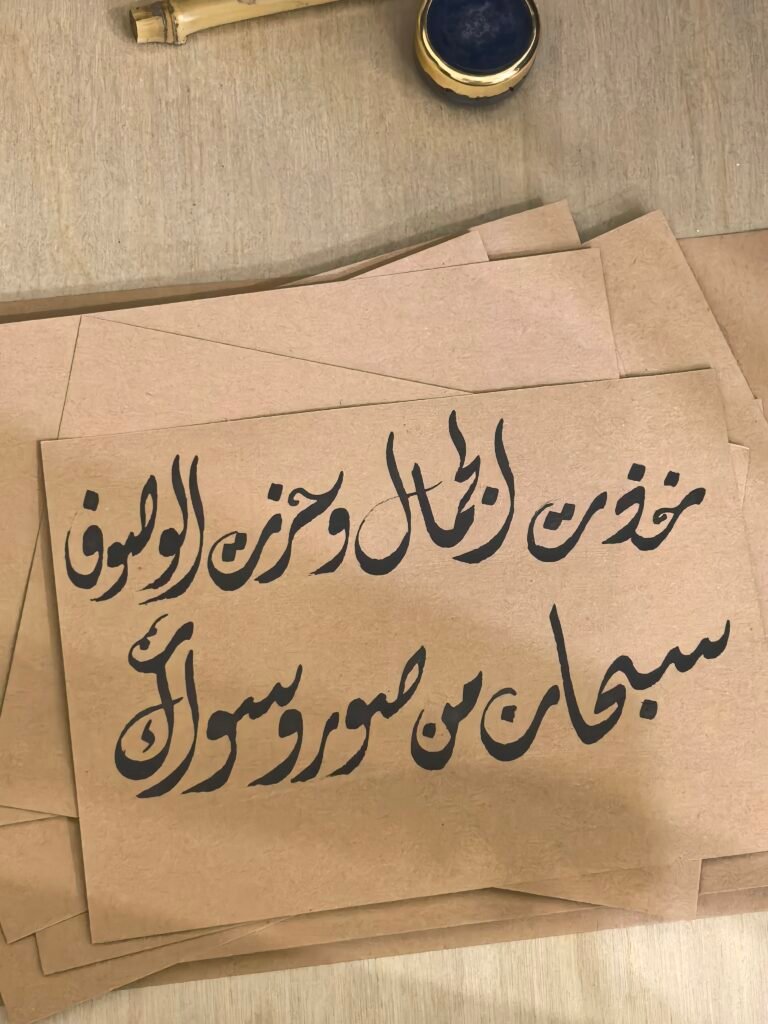 خذت الجمال وحزت الوصوف
سبحان من صور وسواك